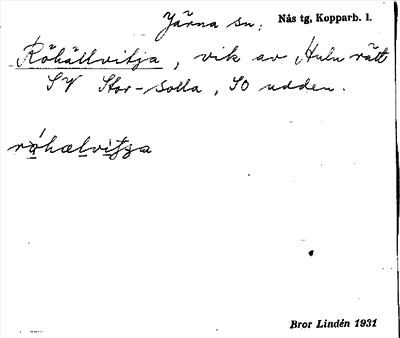 Järna sn. Nås tg, Kopparb. l.
Röhällvitja, vik av Huln rätt
SV Stor-Solla, SO udden.
röhælvitja
Bror Lindén 1931